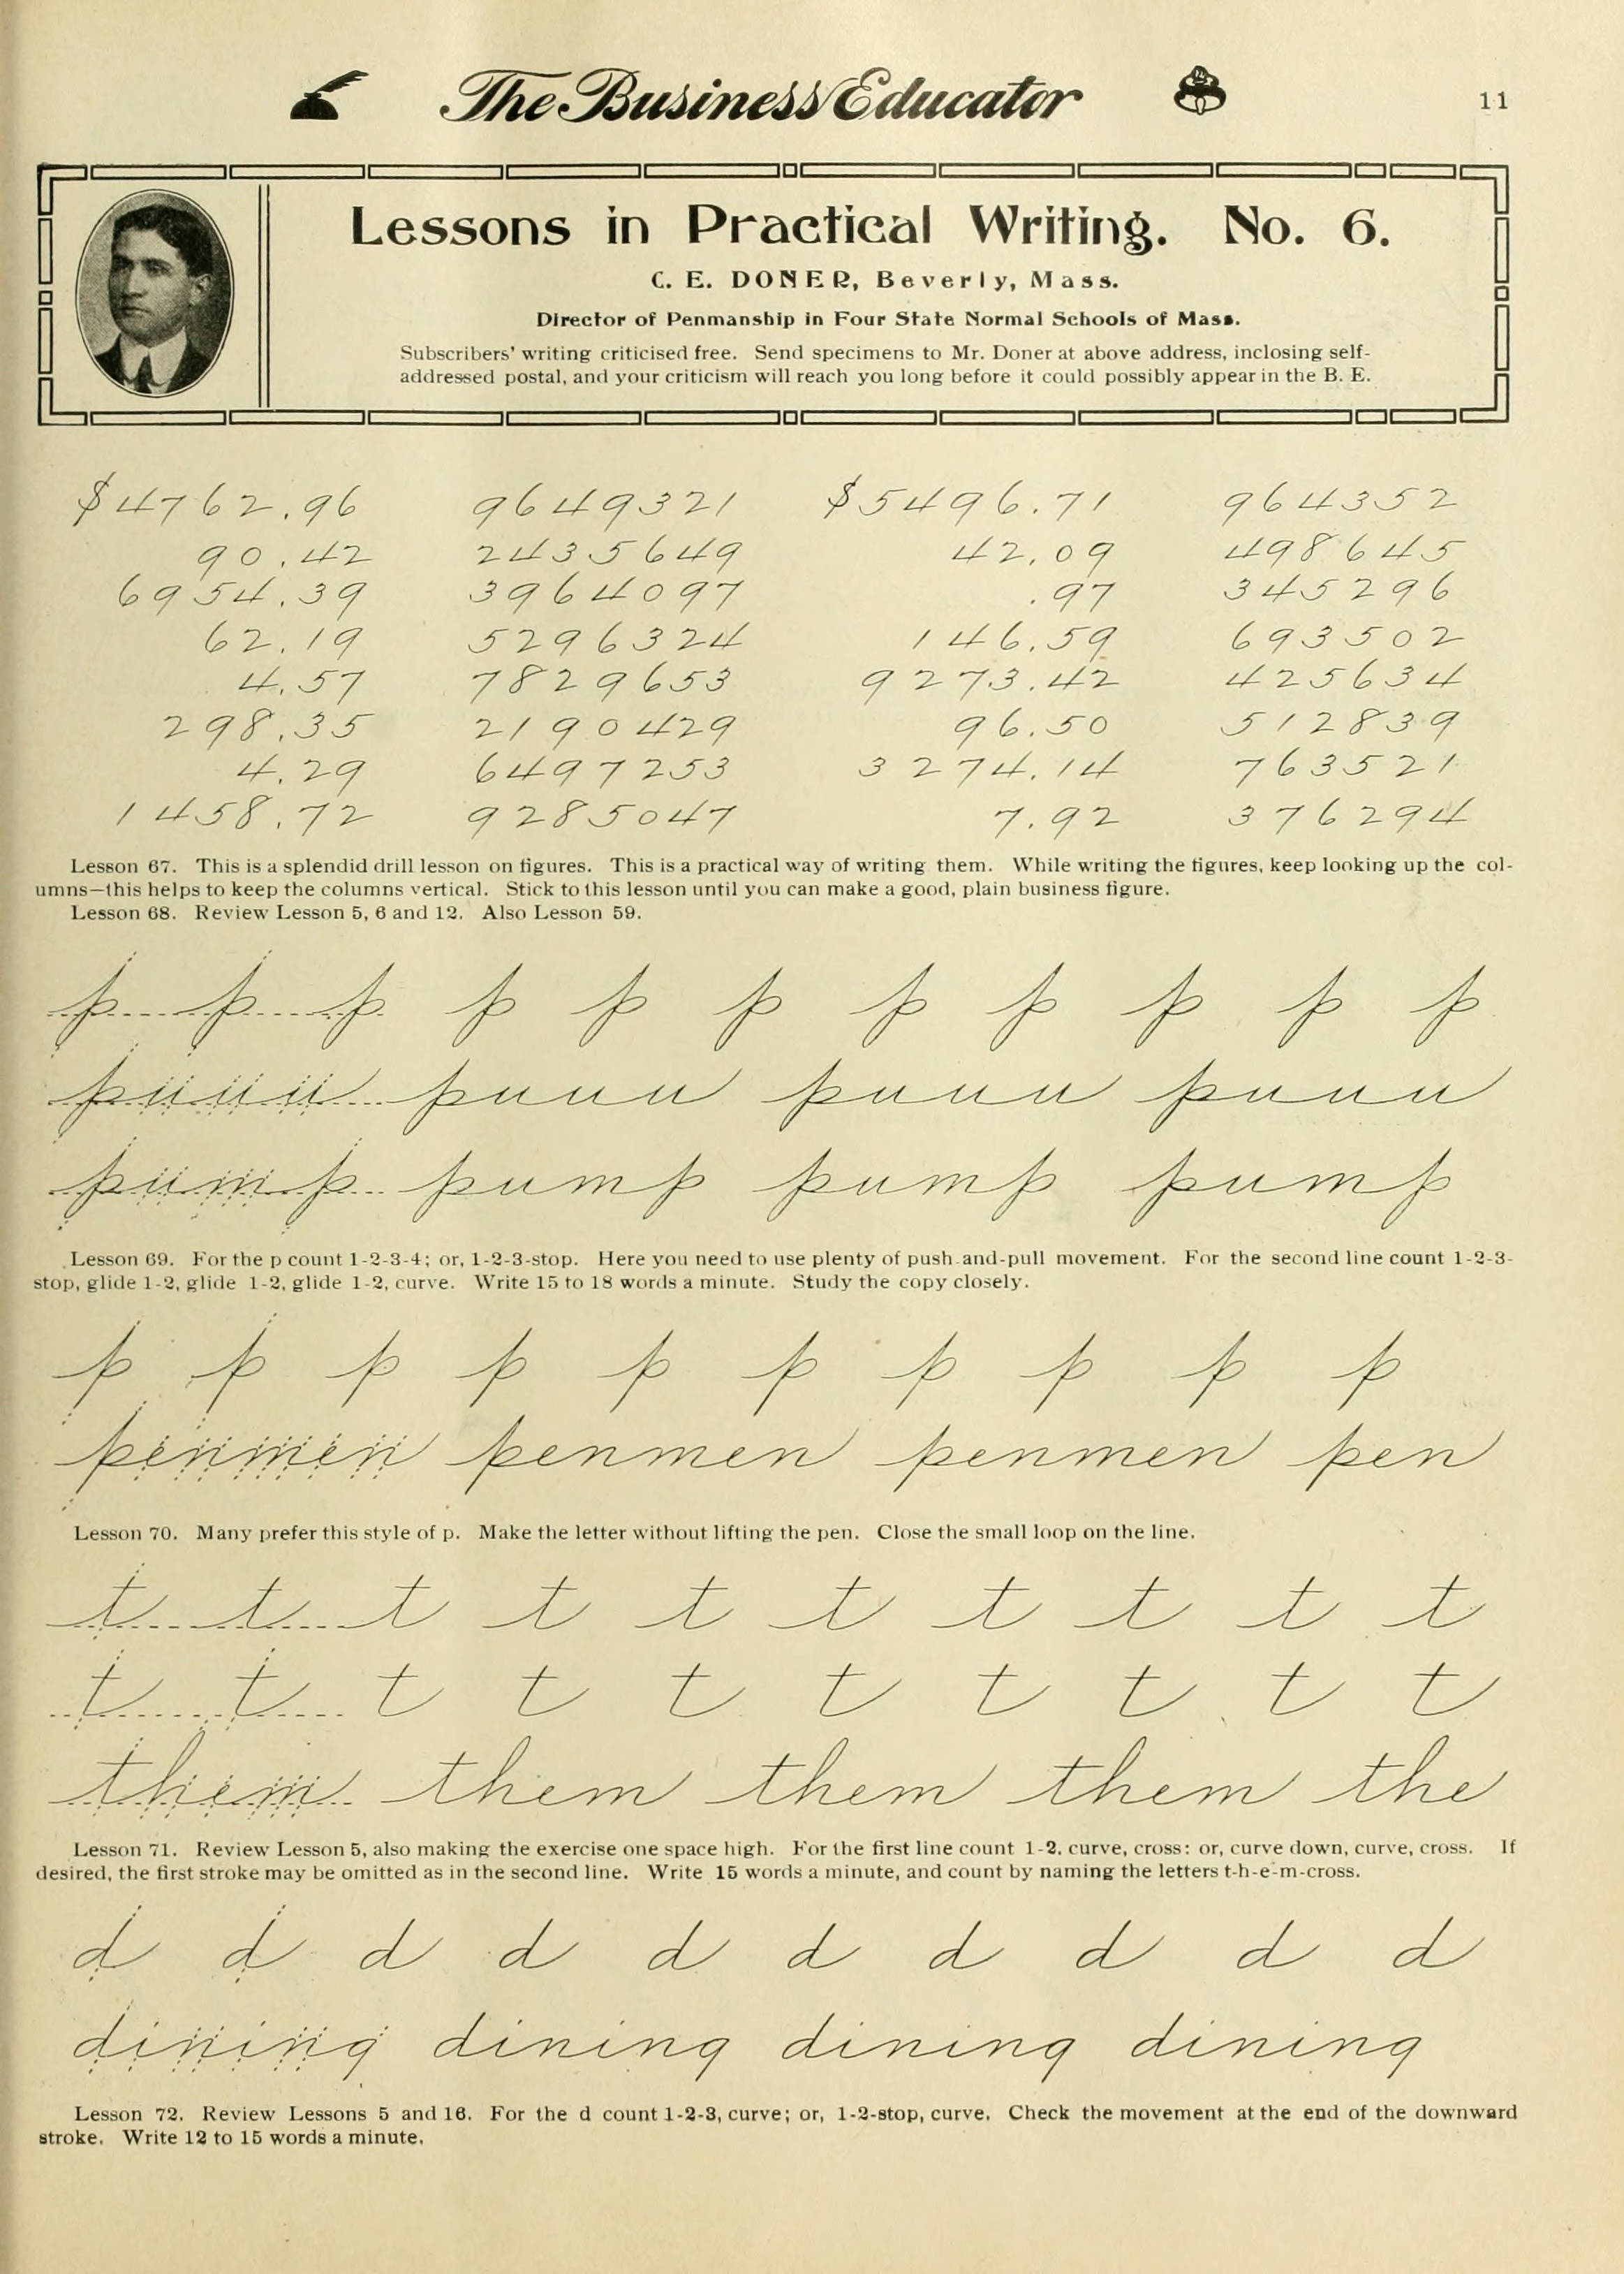 The Business Educator 11
Lessons in Practical Writing. No. 6.
C. E. DONER, Beverly, Mass.
Director of Penmanship in Four State Normal Schools of Mass.
Subscribers' writing criticised free. Send specimens to Mr. Doner at above address, inclosing self-
addressed postal, and your criticism will reach you long before it could possibly appear in the B. E.
$4762.96 9649321 $5496.71 964352
90.42 2435649 42.09 498645
6954.39 3964097 .97 345296
62.19 5296324 146.59 693502
4.57 7829653 9273.42 425634
298.35 2190429 96.50 512839
4.29 6497253 3274.14 763521
1458.72 9285047 7.92 376294
Lesson 67. This is a splendid drill lesson on figures. This is a practical way of writing them. While writing the figures, keep looking up the col-
umns—this helps to keep the columns vertical. Stick to this lesson until you can make a good, plain business figure.
Lesson 68. Review Lesson 5, 6 and 12. Also Lesson 59.
p p p p p p p p p p p
puuu puuu puuu puuu
pump pump pump pump
Lesson 69. For the p count 1-2-3-4; or, 1-2-3-stop. Here you need to use plenty of push-and-pull movement. For the second line count 1-2-3-
stop, glide 1-2, glide 1-2, glide 1-2, curve. Write 15 to 18 words a minute. Study the copy closely.
p p p p p p p p p p
penmen penmen penmen pen
Lesson 70. Many prefer this style of p. Make the letter without lifting the pen. Close the small loop on the line.
t t t t t t t t t t
t t t t t t t t t t
them them them them the
Lesson 71. Review Lesson 5, also making the exercise one space high. For the first line count 1-2, curve, cross: or, curve down, curve, cross. If
desired, the first stroke may be omitted as in the second line. Write 15 words a minute, and count by naming the letters t-h-e-m-cross.
d d d d d d d d d d
dining dining dining dining
Lesson 72. Review Lessons 5 and 16. For the d count 1-2-3, curve; or, 1-2-stop, curve. Check the movement at the end of the downward
stroke. Write 12 to 15 words a minute.